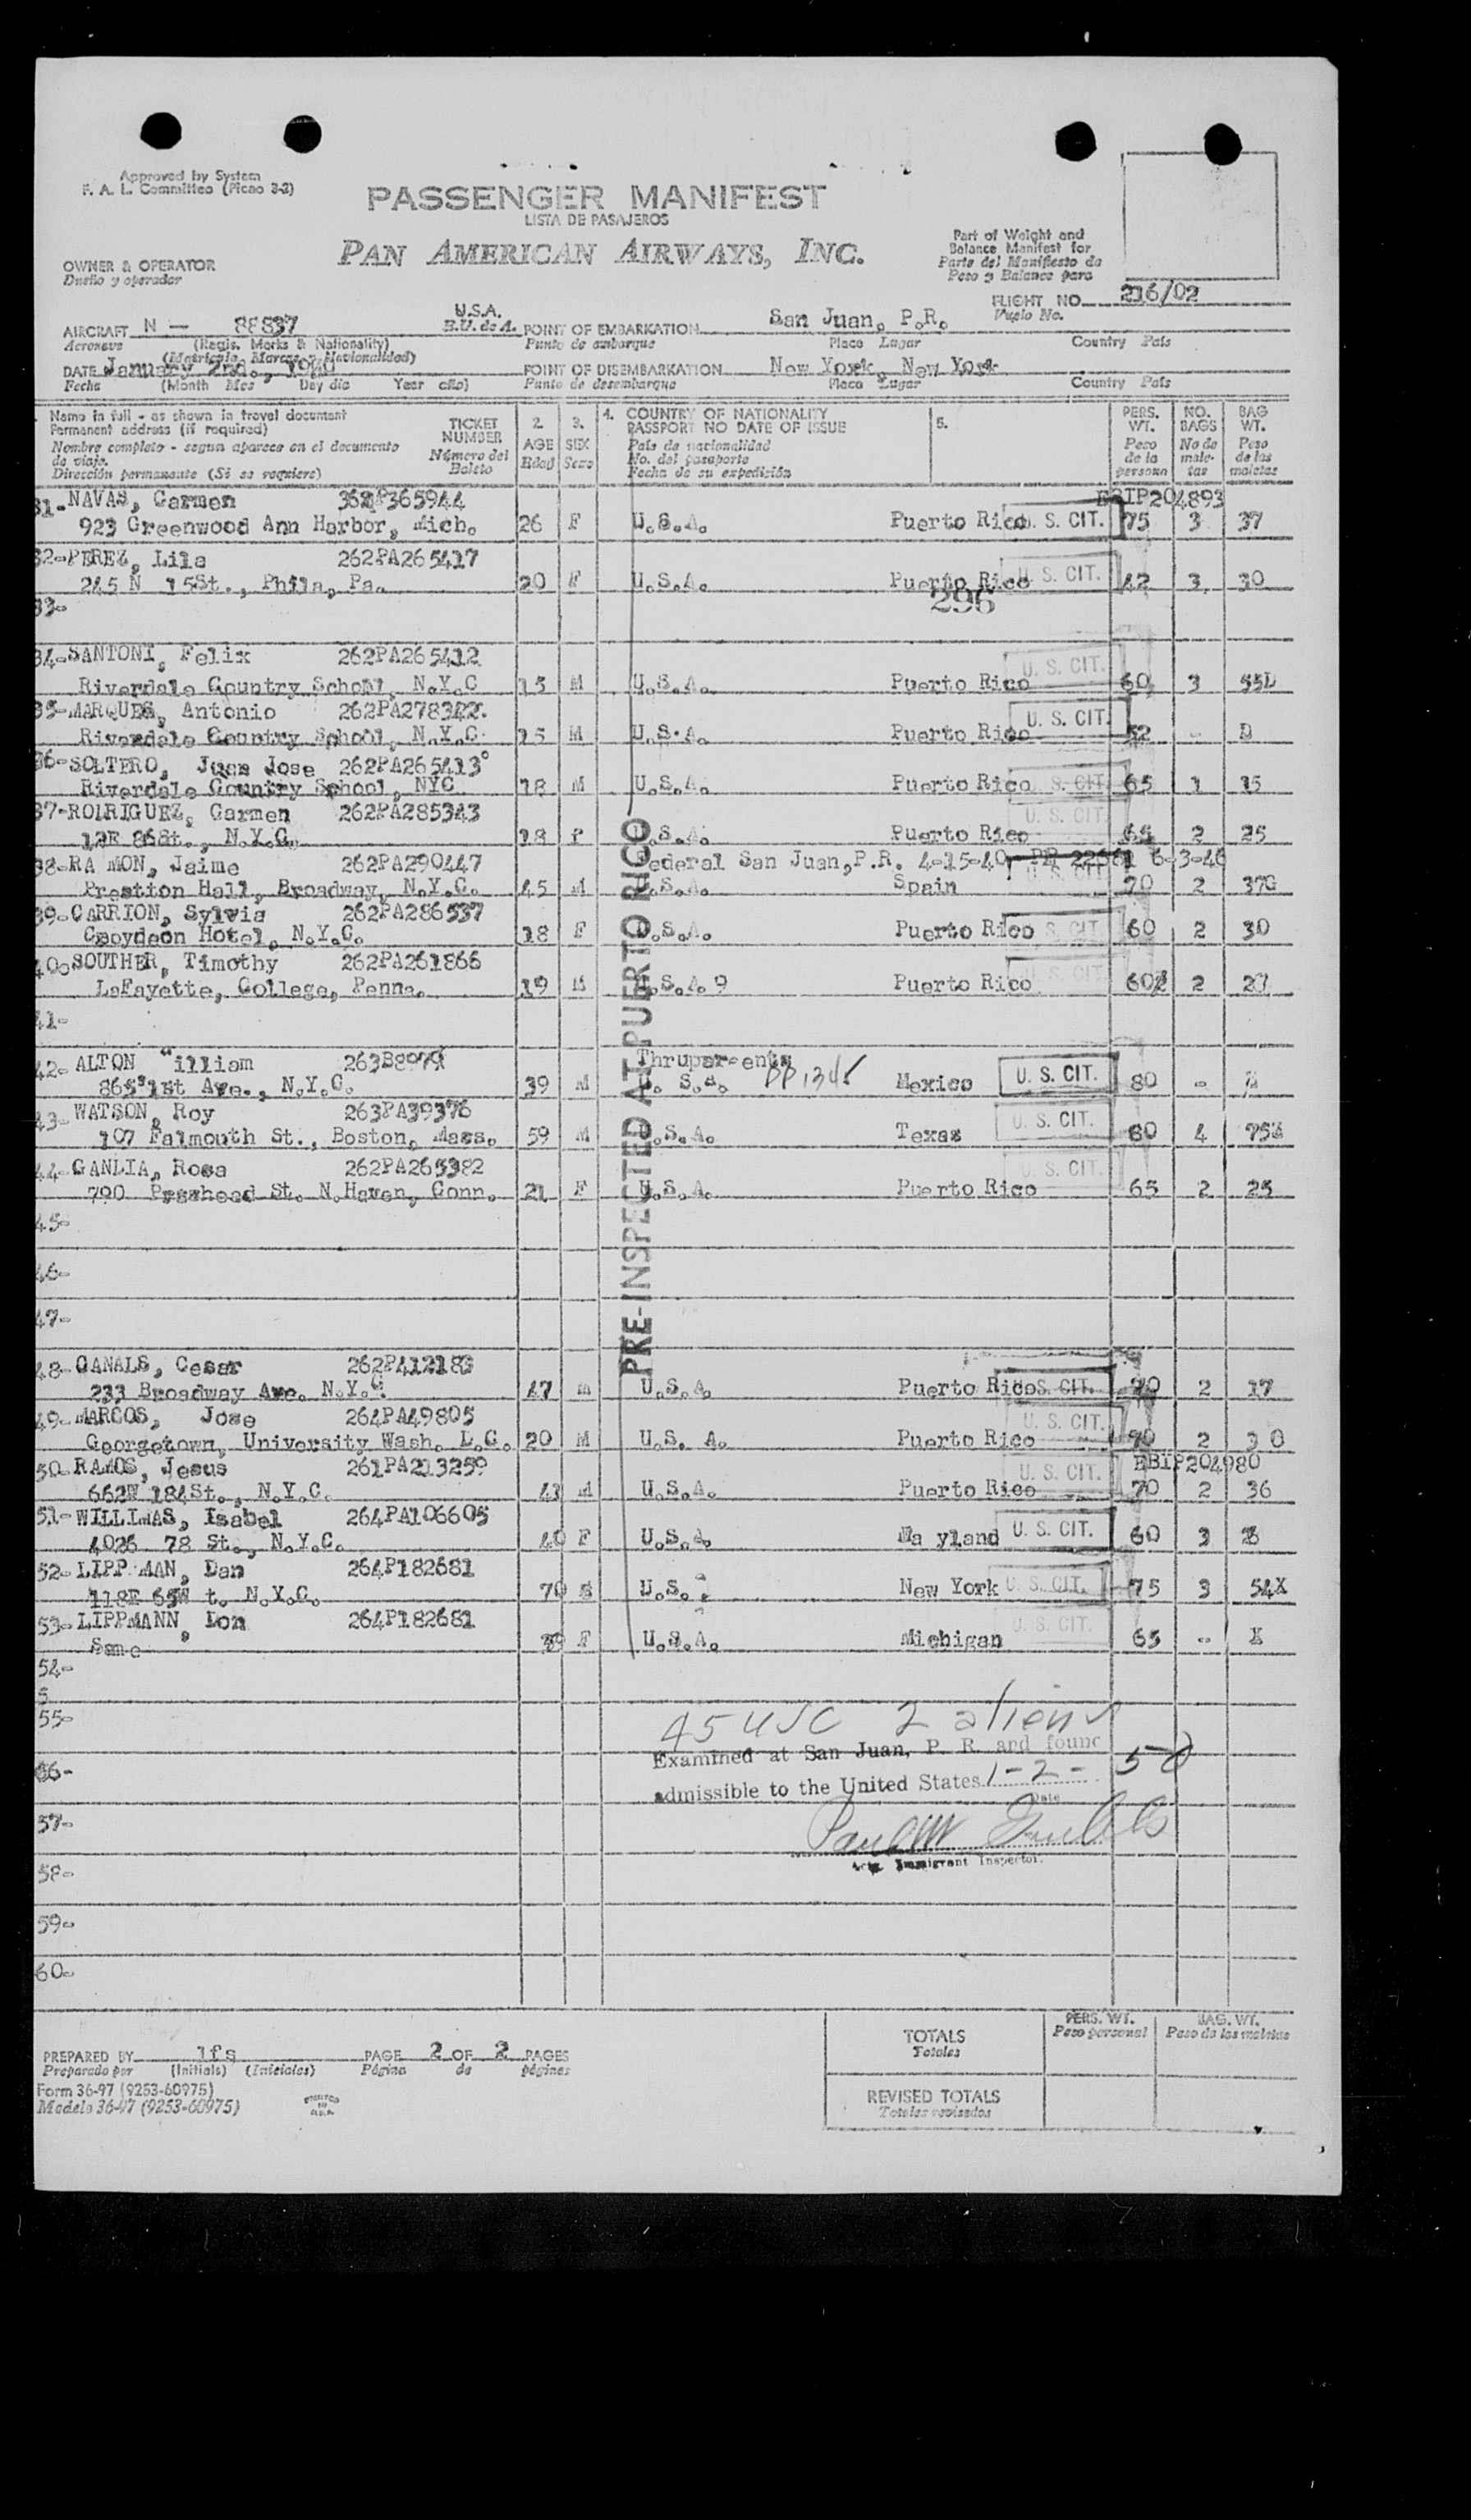 Approved by System
F. A. L. Committee (Picao 3-2)
PASSENGER MANIFEST
LISTA DE PASAJEROS
PAN AMERICAN AIRWAYS, INC.
Part of Weight and
Balance Manifest for
Parte del Manifiesto de
Peso y Balance para
OWNER & OPERATOR
Dueño y operador
FLIGHT NO. 216/02
Vuelo No.
AIRCRAFT N - 88837 U.S.A. POINT OF EMBARKATION San Juan, P.R.
Aeronave (Regis. Marks & Nationality) E.U. de A. Punto de embarque Place Lugar Country País
(Matrícula, Marcas y Nacionalidad)
DATE January 2nd., POINT OF DISEMBARKATION New York, New York
Fecha (Month Mes Day día Year año) Punto de desembarque Place Lugar Country País
Name in full - as shown in travel document
Permanent address (if required)
Nombre completo - segun aparece en el documento
de viaje.
Dirección permanente (Si se requiere)
TICKET
NUMBER
Número del
Boleto
2.
AGE
Edad
3.
SEX
Sexo
4. COUNTRY OF NATIONALITY
PASSPORT NO DATE OF ISSUE
País de nacionalidad
No. del pasaporte
Fecha de su expedición
5.
PERS.
WT.
Peso
de la
persona
NO.
BAGS
No de
male-
tas
BAG
WT.
Peso
de las
maletas
31- NAVAS, Carmen EBTP204893
923 Greenwood Ann Harbor, Mich. 26 F U.S.A. Puerto Rico U. S. CIT. 75 3 37
32- PEREZ, Lila 262PA265417
245 N 15St., Phila, Pa. 20 F U.S.A. Puerto Rico U. S. CIT. 42 3 30
33-
296
34- SANTONI, Felix 262PA265412
Riverdale Country School, N.Y.C 15 M U.S.A. Puerto Rico U. S. CIT. 60 3 55D
35- MARQUES, Antonio 262PA278342.
Riverdale Country School, N.Y.C. 15 M U.S.A. Puerto Rico U. S. CIT. 52 - D
36- SOLTERO, Juan Jose 262PA265413
Riverdale Country School, NYC 18 M U.S.A. Puerto Rico U. S. CIT. 65 1 15
37- RODRIGUEZ, Carmen 262PA285343
12E 86St., N.Y.C. 18 F U.S.A. Puerto Rico U. S. CIT. 65 2 25
38- RA MON, Jaime 262PA290447 Federal San Juan,P.R. 4-15-40 PR 22681 6-3-46
Prestion Hall, Broadway, N.Y.C. 45 M U.S.A. Spain U. S. CIT 70 2 37G
39- CARRION, Sylvia 262PA286537
Croydeon Hotel, N.Y.C. 18 F U.S.A. Puerto Rico S. CIT 60 2 30
40- SOUTHER, Timothy 262PA261866
LaFayette, College, Penna. 19 M U.S.A 9 Puerto Rico U. S. CIT. 60 2 27
41-
42- ALTON "illiam Thruparents
865 1st Ave., N.Y.C. 39 M U. S.A. PP1345 Mexico U. S. CIT. 80 -
43- WATSON, Roy 263PA39376
107 Falmouth St., Boston, Mass. 59 M U.S.A. Texas U. S. CIT. 80 4
44- GANLIA, Rosa 262PA265382
790 St. N.Haven, Conn. 21 F U.S.A. Puerto Rico U. S. CIT. 65 2 25
45-
46-
47-
PRE-INSPECTED AT PUERTO RICO
48- CANALS, Cesar
233 Broadway Ave. N.Y.C. 47 m U.S.A. Puerto Rico S. CIT. 70 2 17
49- MARCOS, Jose 264PA49805
Georgetown, University Wash. D.C. 20 M U.S. A. Puerto Rico U. S. CIT. 70 2 30
50- RAMOS, Jesus 261PA213259 EBTP204980
662W 184St., N.Y.C. 43 M U.S.A. Puerto Rico U. S. CIT. 70 2 36
51- WILLIMAS, Isabel 264PA106605
4026 78 St., N.Y.C. 40 F U.S.A. Ma yland U. S. CIT. 60 3
52- LIPP MAN, Dan 264P182681
118E 65W t. N.Y.C. 70 U.S. New York U. S. CIT. 75 3 54X
53- LIPPMANN, Don 264P182681
Same F U.S.A. Michigan U. S. CIT. 65 - X
54-
55-
45 USC 2 aliens
Examined at San Juan, P. R. and found
56-
admissible to the United States 1-2-50
Date
57-
Actg. Immigrant Inspector.
58-
59-
60-
PREPARED BY lfs PAGE 2 OF 2 PAGES
Preparado por (Initials) (Iniciales) Página de páginas
Form 36-97 (9253-60975)
Modelo 36-97 (9253-60975)
PRINTED
IN
U.S.A.
TOTALS
Totales
PERS. WT.
Peso personal
BAG. WT.
Peso de las maletas
REVISED TOTALS
Totales revisados